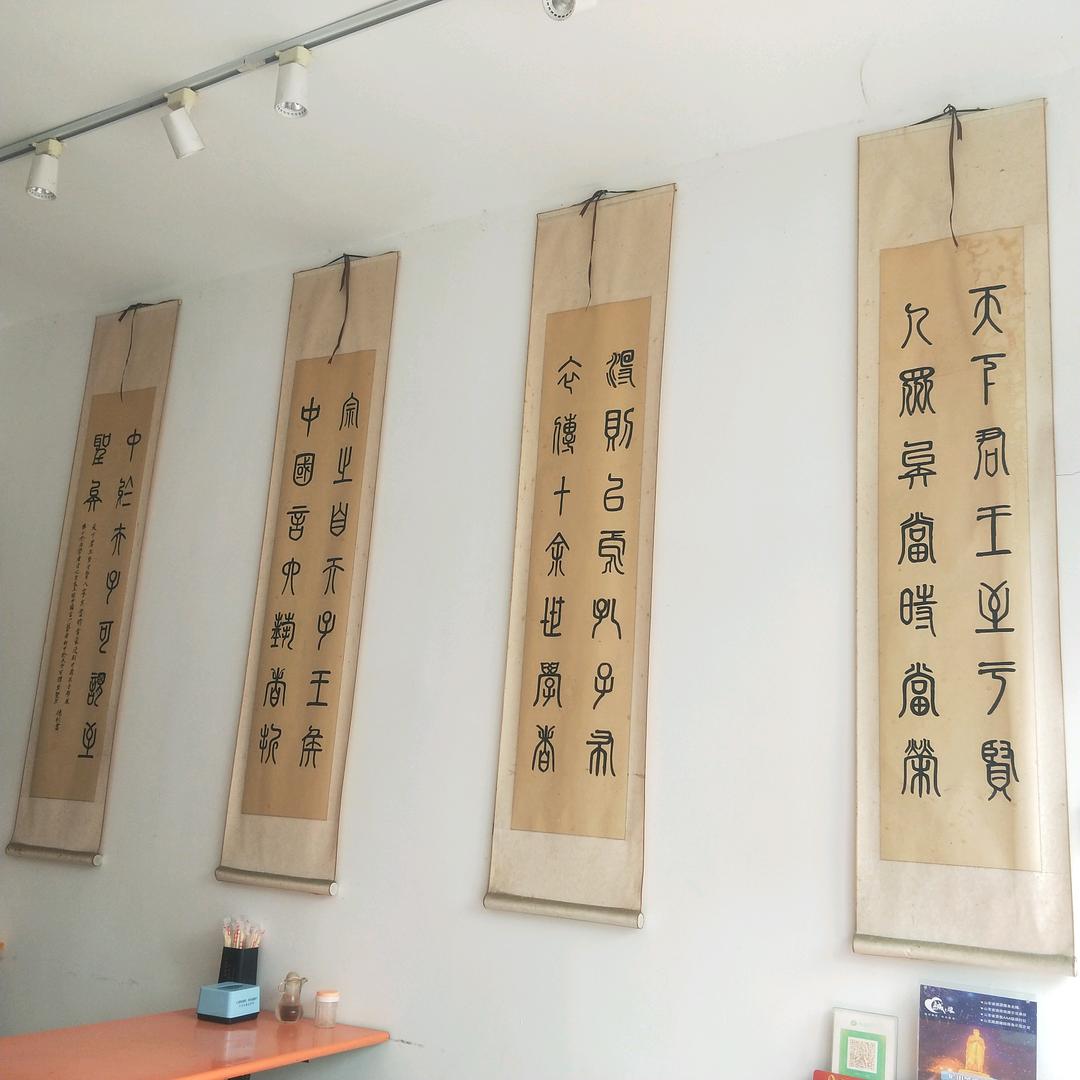 天下君王至于賢
人眾矣當時當榮
沒則已焉孔子布
衣傳十余世學者
宗之自天子王侯
中國言六藝者折
中於夫子可謂至
聖矣